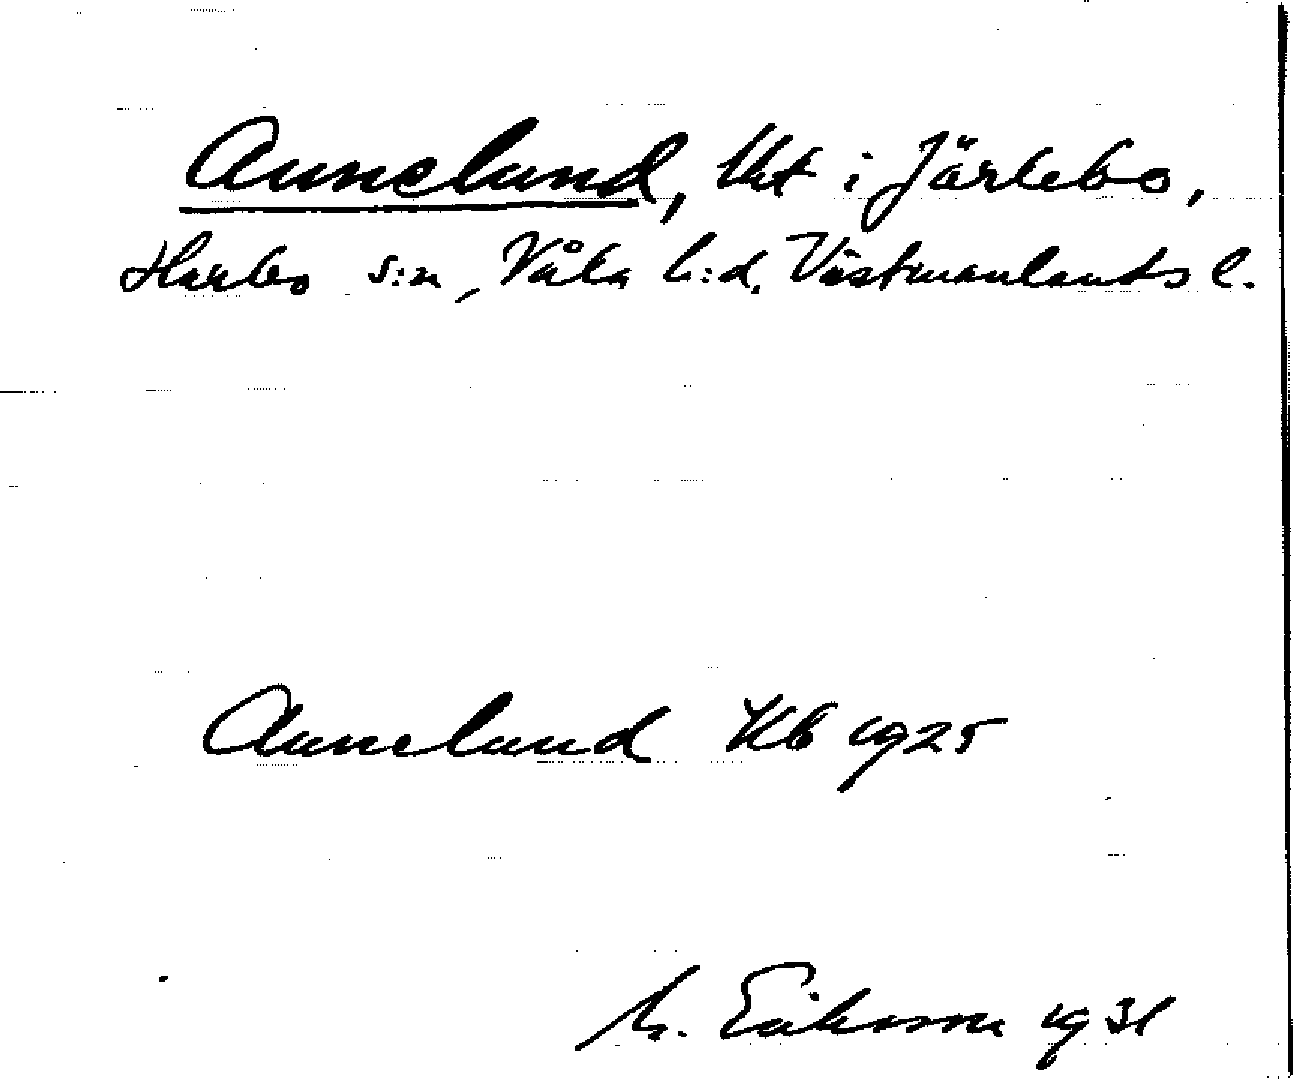 Annelund, Ut i Järlebo,
Harbo s:n, Våla h:d, Västmanlands l.
Annelund Kb 1925
M. Eriksson 1931